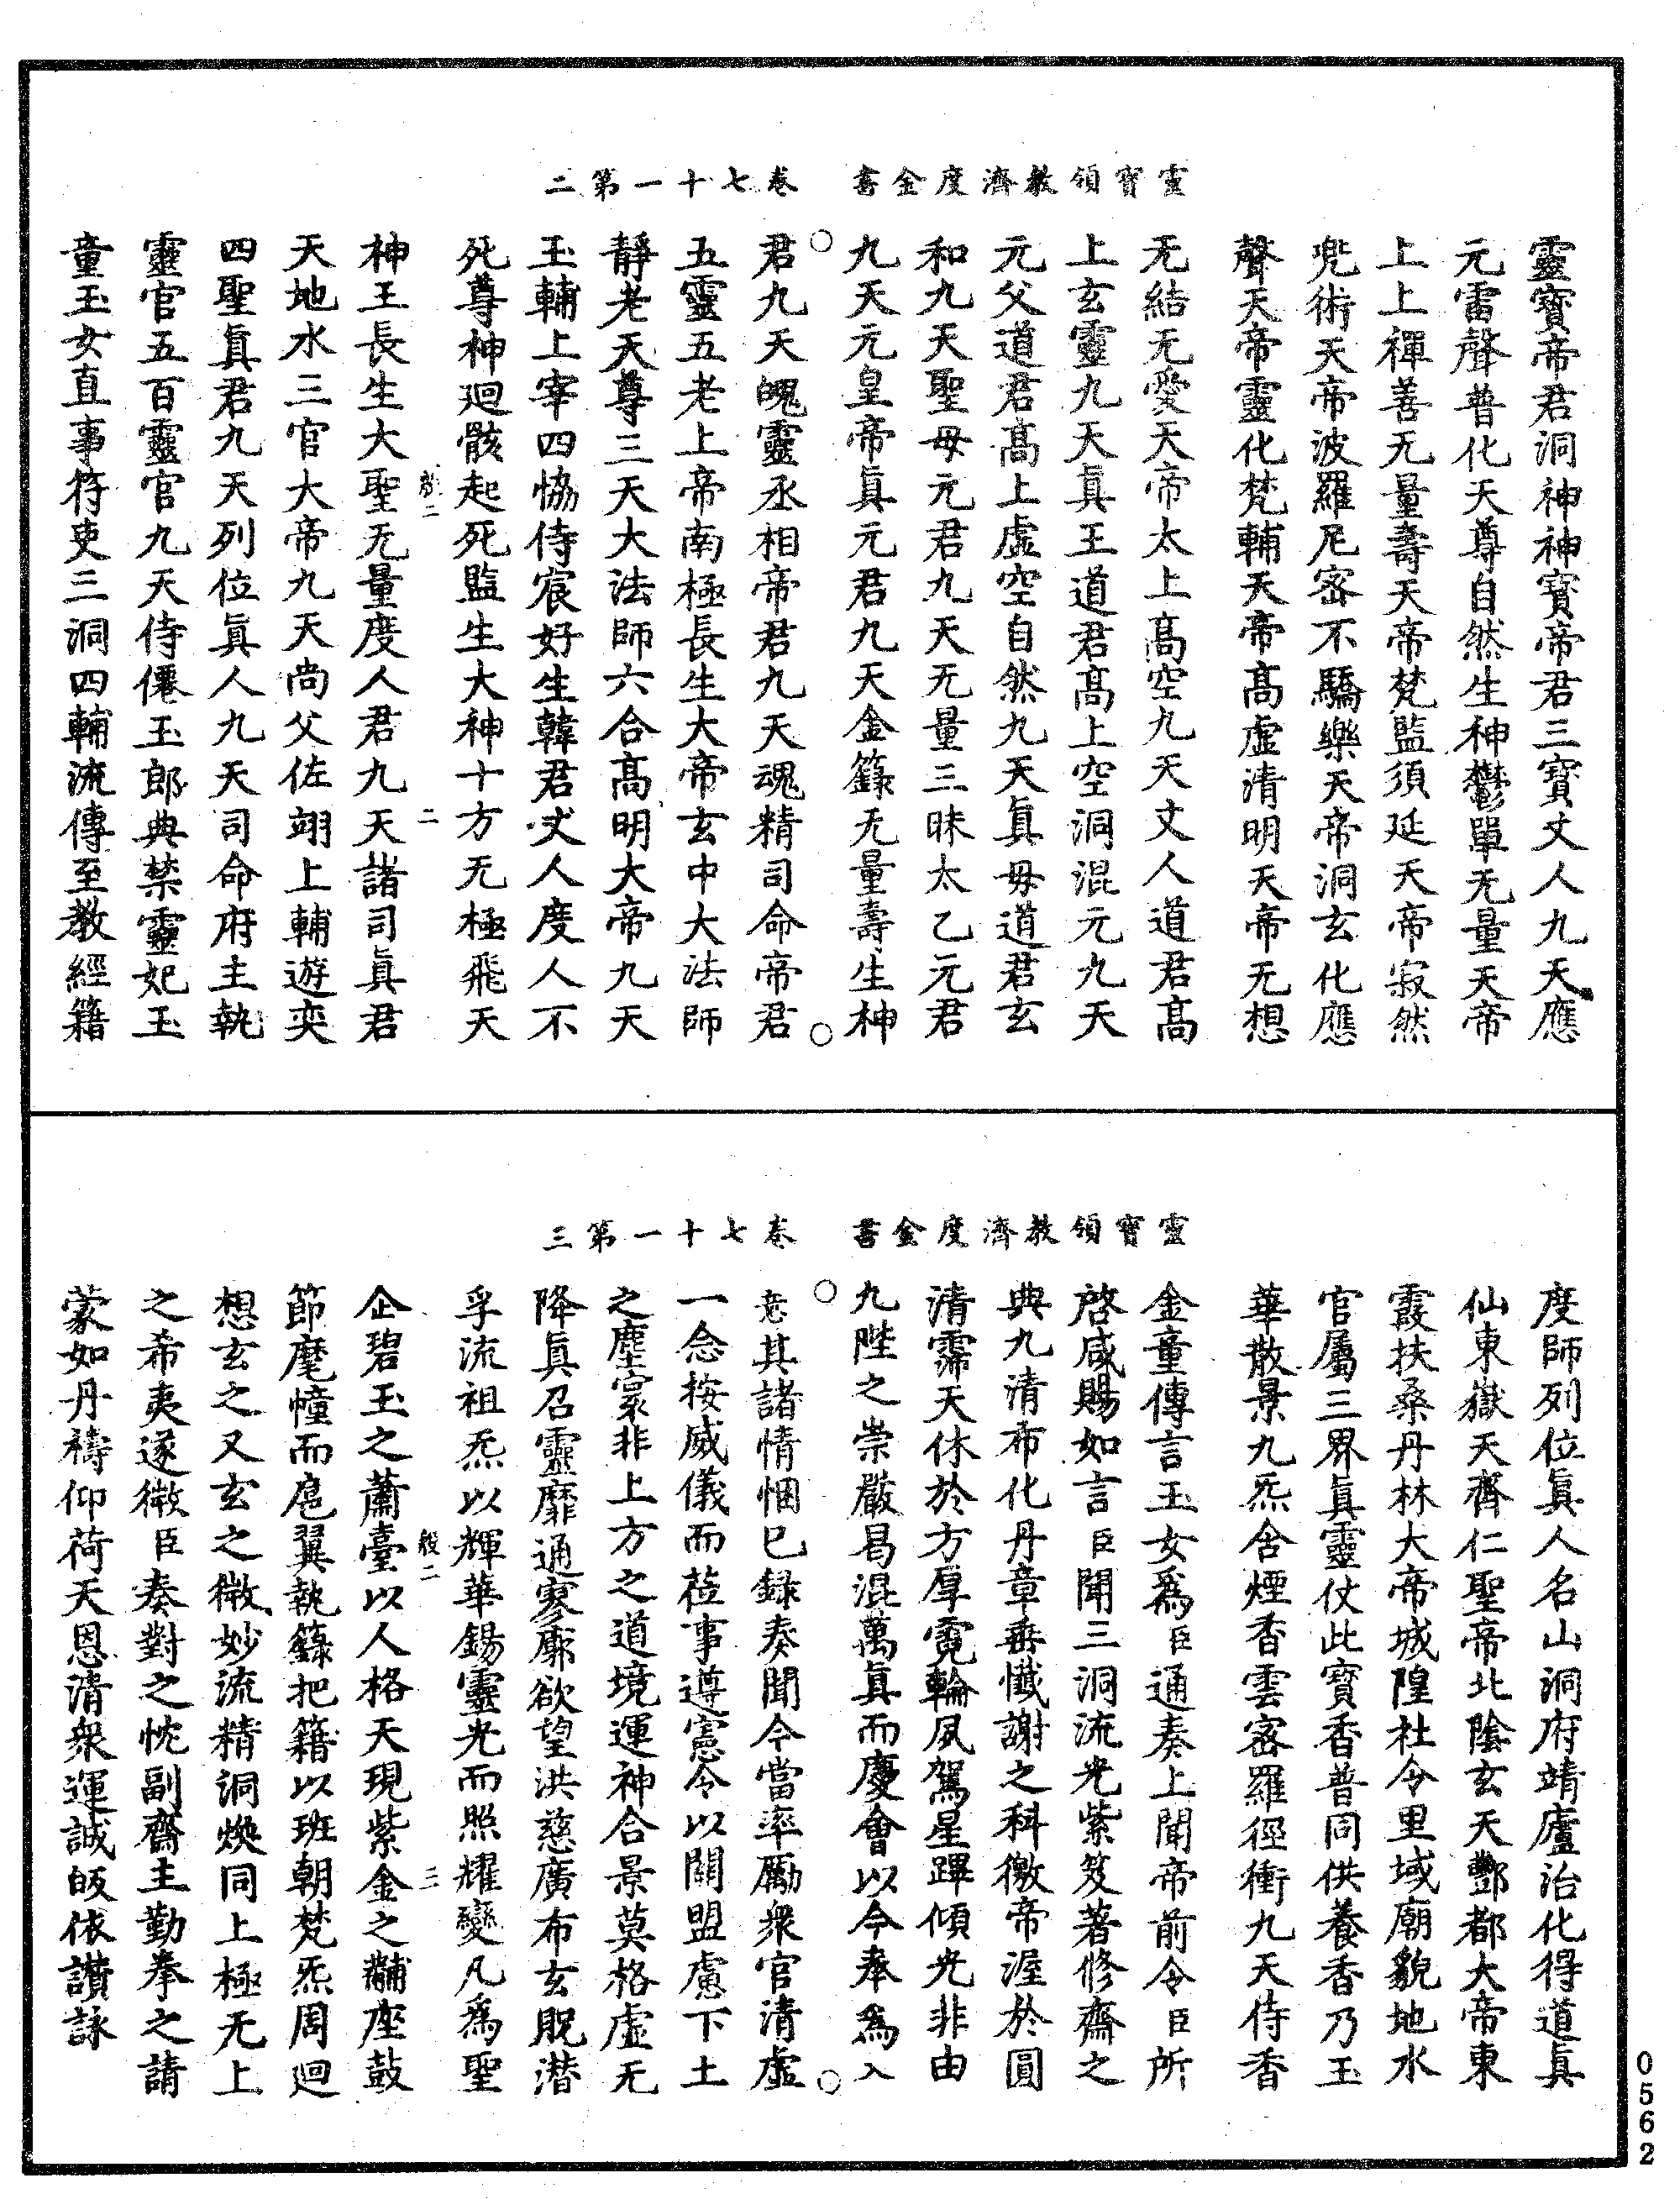 靈寶領教濟度金書　卷七十一第二
靈寶帝君洞神神寶帝君三寶丈人九天應
元雷聲普化天尊自然生神鬱單无量天帝
上上禪善无量壽天帝梵監須延天帝寂然
兜術天帝波羅尼密不驕樂天帝洞玄化應
聲天帝靈化梵輔天帝高虛清明天帝无想
无結无愛天帝太上高空九天丈人道君高
上玄靈九天眞王道君高上空洞混元九天
元父道君高上虛空自然九天眞母道君玄
和九天聖母元君九天无量三昧太乙元君
九天元皇帝眞元君九天金籙无量壽生神
君九天魄靈丞相帝君九天魂精司命帝君
五靈五老上帝南極長生大帝玄中大法師
靜老天尊三天大法師六合高明大帝九天
玉輔上宰四協侍宸好生韓君丈人度人不
死尊神廻骸起死監生大神十方无極飛天
神王長生大聖无量度人君九天諸司眞君
天地水三官大帝九天尚父佐翊上輔遊奕
四聖眞君九天列位眞人九天司命府主執
靈官五百靈官九天侍僊玉郎典禁靈妃玉
童玉女直事符吏三洞四輔流傳至教經籍
靈寶領教濟度金書　卷七十一第三
度師列位眞人名山洞府靖廬治化得道眞
仙東嶽天齊仁聖帝北陰玄天酆都大帝東
霞扶桑丹林大帝城隍社令里域廟貌地水
官屬三界眞靈仗此寶香普同供養香乃玉
華散景九炁含煙香雲密羅徑衝九天侍香
金童傳言玉女爲臣通奏上聞帝前令臣所
啓咸賜如言臣聞三洞流光紫笈著修齋之
典九清布化丹章垂懺謝之科徼帝渥於圓
清霈天休於方厚霓輪夙駕星蹕傾光非由
九陛之崇嚴曷混萬眞而慶會以今奉爲入
意其諸情悃已錄奏聞今當率勵衆官清虛
一念按威儀而莅事遵憲令以關盟慮下土
之塵寰非上方之道境運神合景莫格虛无
降眞召靈靡通寥廓欲望洪慈廣布玄貺潛
孚流祖炁以輝華錫靈光而照耀變凡爲聖
企碧玉之蕭臺以人格天現紫金之黼座鼓
節麾幢而扈翼執籙把籍以班朝梵炁周迴
想玄之又玄之微妙流精洞煥同上極无上
之希夷遂微臣奏對之忱副齋主勤拳之請
蒙如丹禱仰荷天恩清衆運誠皈依讚詠
般二　二
般二　三
0562